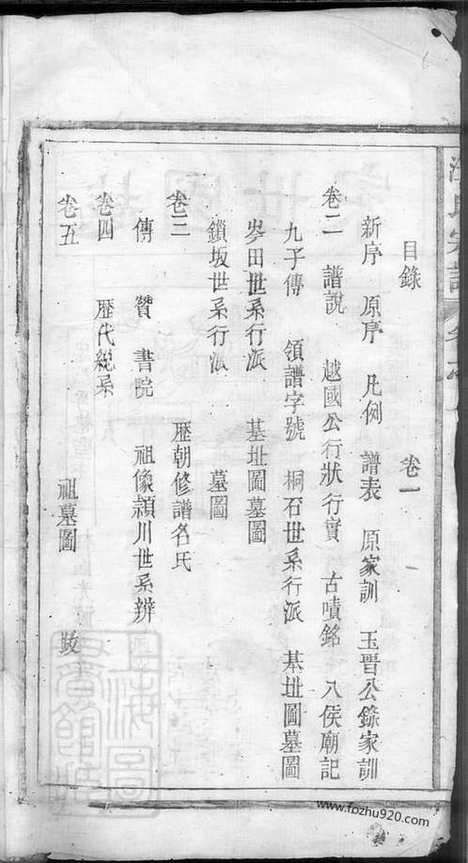 目錄 卷一
新序 原序 凡例 譜表 原家訓 玉晋公錄家訓
卷二 譜說 越國公行狀行實 古嘖銘 八侯廟記
九子傳 領譜字號 桐石世系行派 基址圖墓圖
岑田世系行派 基址圖墓圖
鎖坂世系行派 墓圖
卷三 歷朝修譜名氏
傳 贊 書院 祖像潁川世系辨
卷四 歷代統系
卷五 祖墓圖 跋
www.fozhu920.com